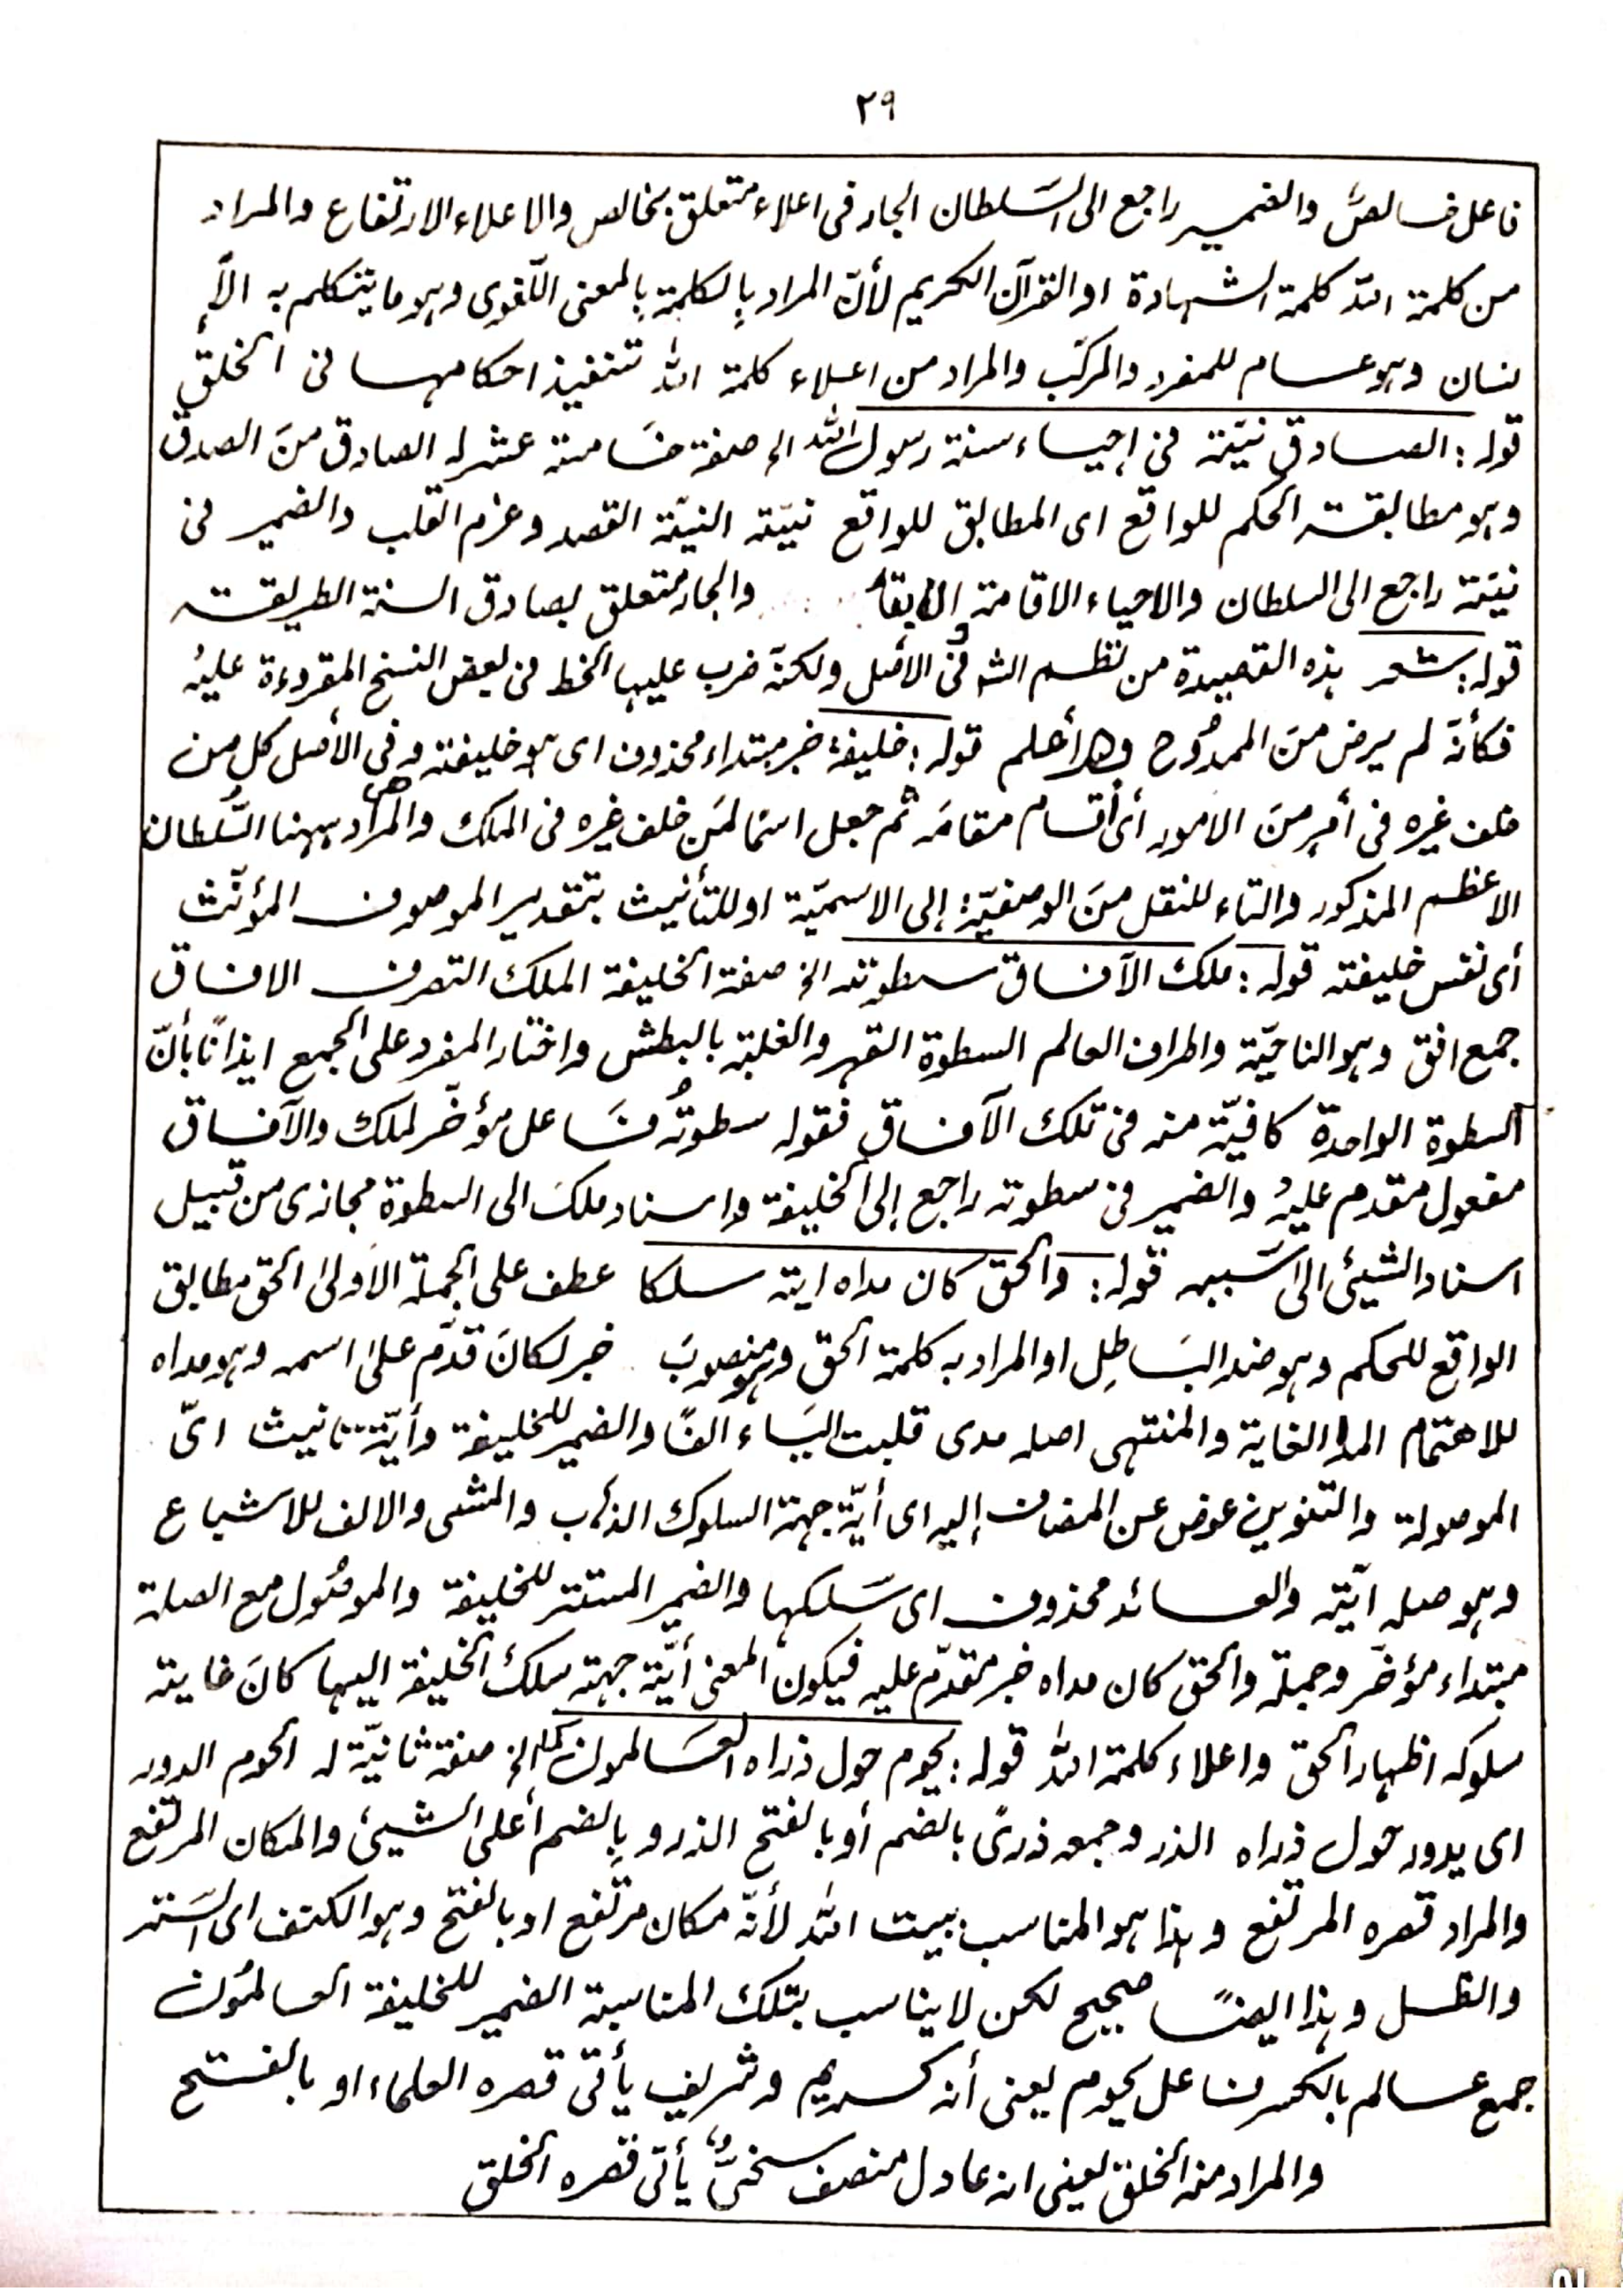 ٢٩
فاعل خالصٌ والضمير راجع الى السَلطان الجار فى اعلاء متعلق بخالص والاعلاء الارتفاع والمراد
من كلمة اللّه كلمة الشهادة او القرآن الكريم لأنّ المراد بالكلمة بالمعنى اللّغوى وهو ما يتكلم به الأِ
نسان وهو عام للمفرد والمركّب والمراد من اعلاء كلمة اللّه تنفيذ احكامها فى الخلق
قوله: الصادق نيّته فى إحياء سنة رسول اللّه الخ صفة خامسة عشر له الصادق منَ الصدق
وهو مطابقة الحكم للواقع اى المطابق للواقع نيّته النيّة القصد وعزم القلب والضمير فى
نيّته راجع الى السلطان والاحياء الاقامة والابقاء والجار متعلق بصادق السنة الطريقة
قوله: شعر هذه القصيدة من نظم الش فى الأصل ولكنّه ضرب عليها الخط فى بعض النسخ المقروءة عليهُ
فكأنّه لم يرض منَ الممدُوح وهو أعلم قوله: خليفة خبر مبتداء محذوف اى هو خليفته وفى الأصل كل من
خلف غيره فى أمرٍ منَ الامور أى أقام مقامَه ثم جعل اسمًا لمَن خلف غيره فى الملك والمراد ههنا السُّلطان
الاعظم المذكور والتاء للنقل منَ الوصفيّة إلى الاسميّة او للتأنيث بتقدير الموصوف المؤنّث
أى نفس خليفته قوله: ملك الآفاق سطوته الخ صفة الخليفة الملك التصرف الافاق
جمع افق وهو الناحيّة واطراف العالم السطوة القهر والغلبة بالبطش واختار المفرد على الجمع ايذانًا بأنّ
السطوة الواحدة كافيّة منه فى تلك الآفاق فقوله سطوتُه فاعل مؤخّر لملك والآفاق
مفعول مقدم عليهُ والضمير فى سطوته راجع إلى الخليفة واسناد ملكَ الى السطوة مجازى من قبيل
اسناد الشيئ الى سَببه قوله: والحق كان مداه اية سلكا عطف على الجملة الأولىٰ الحق مطابق
الواقع للحكم وهو ضد البَاطِل او المراد به كلمة الحق وهو منصوبَ خبر لكانَ قدّم علىٰ اسمه وهو مداه
للاهتمام المدا الغاية والمنتهى اصله مدى قلبت اليَاء الفًا والضمير للخليفة وأيّة تانيث اىّ
الموصولة والتنوين عوض عن المضاف إليه اى أيّة جهة السلوك الذهاب والمشى والالف للاشباع
وهو صله آيّة والعائد محذوف اى سَلكها والضمير المستتر للخليفة والموصُول مع الصلة
مبتداء مؤخّر وجملة والحق كان مداه خبر مقدّم عليه فيكون المعنى أيّة جهة سلكَ الخليفة اليها كانَ غاية
سلوكه اظهار الحق واعلاء كلمة اللّه قوله: يحوم حول ذراه العَالمون الخ صفة ثانيّة له الحوم الدور
اى يدور حَول ذراه الذرو جمعه ذرىً بالضم أو بالفتح الذرو بِالضم أعلى الشيئ والمكان المرتفع
والمراد قصره المرتفع وهذا هو المناسب ببيت اللّه لأنّه مكان مرتفع او بالفتح وهو الكنف اى السَتر
والظل وهذا ايضًا صحيح لكن لا يناسب بتلك المناسبة الضمير للخليفة العالمُون
جمع عالم بالكسر فاعل يحوم يعنى أنه كريم وشريف يأتى قصره العلماء او بالفتح
والمراد منه الخلق يعنى انه عادل منصف وسخىٌّ يأتى قصره الخلق